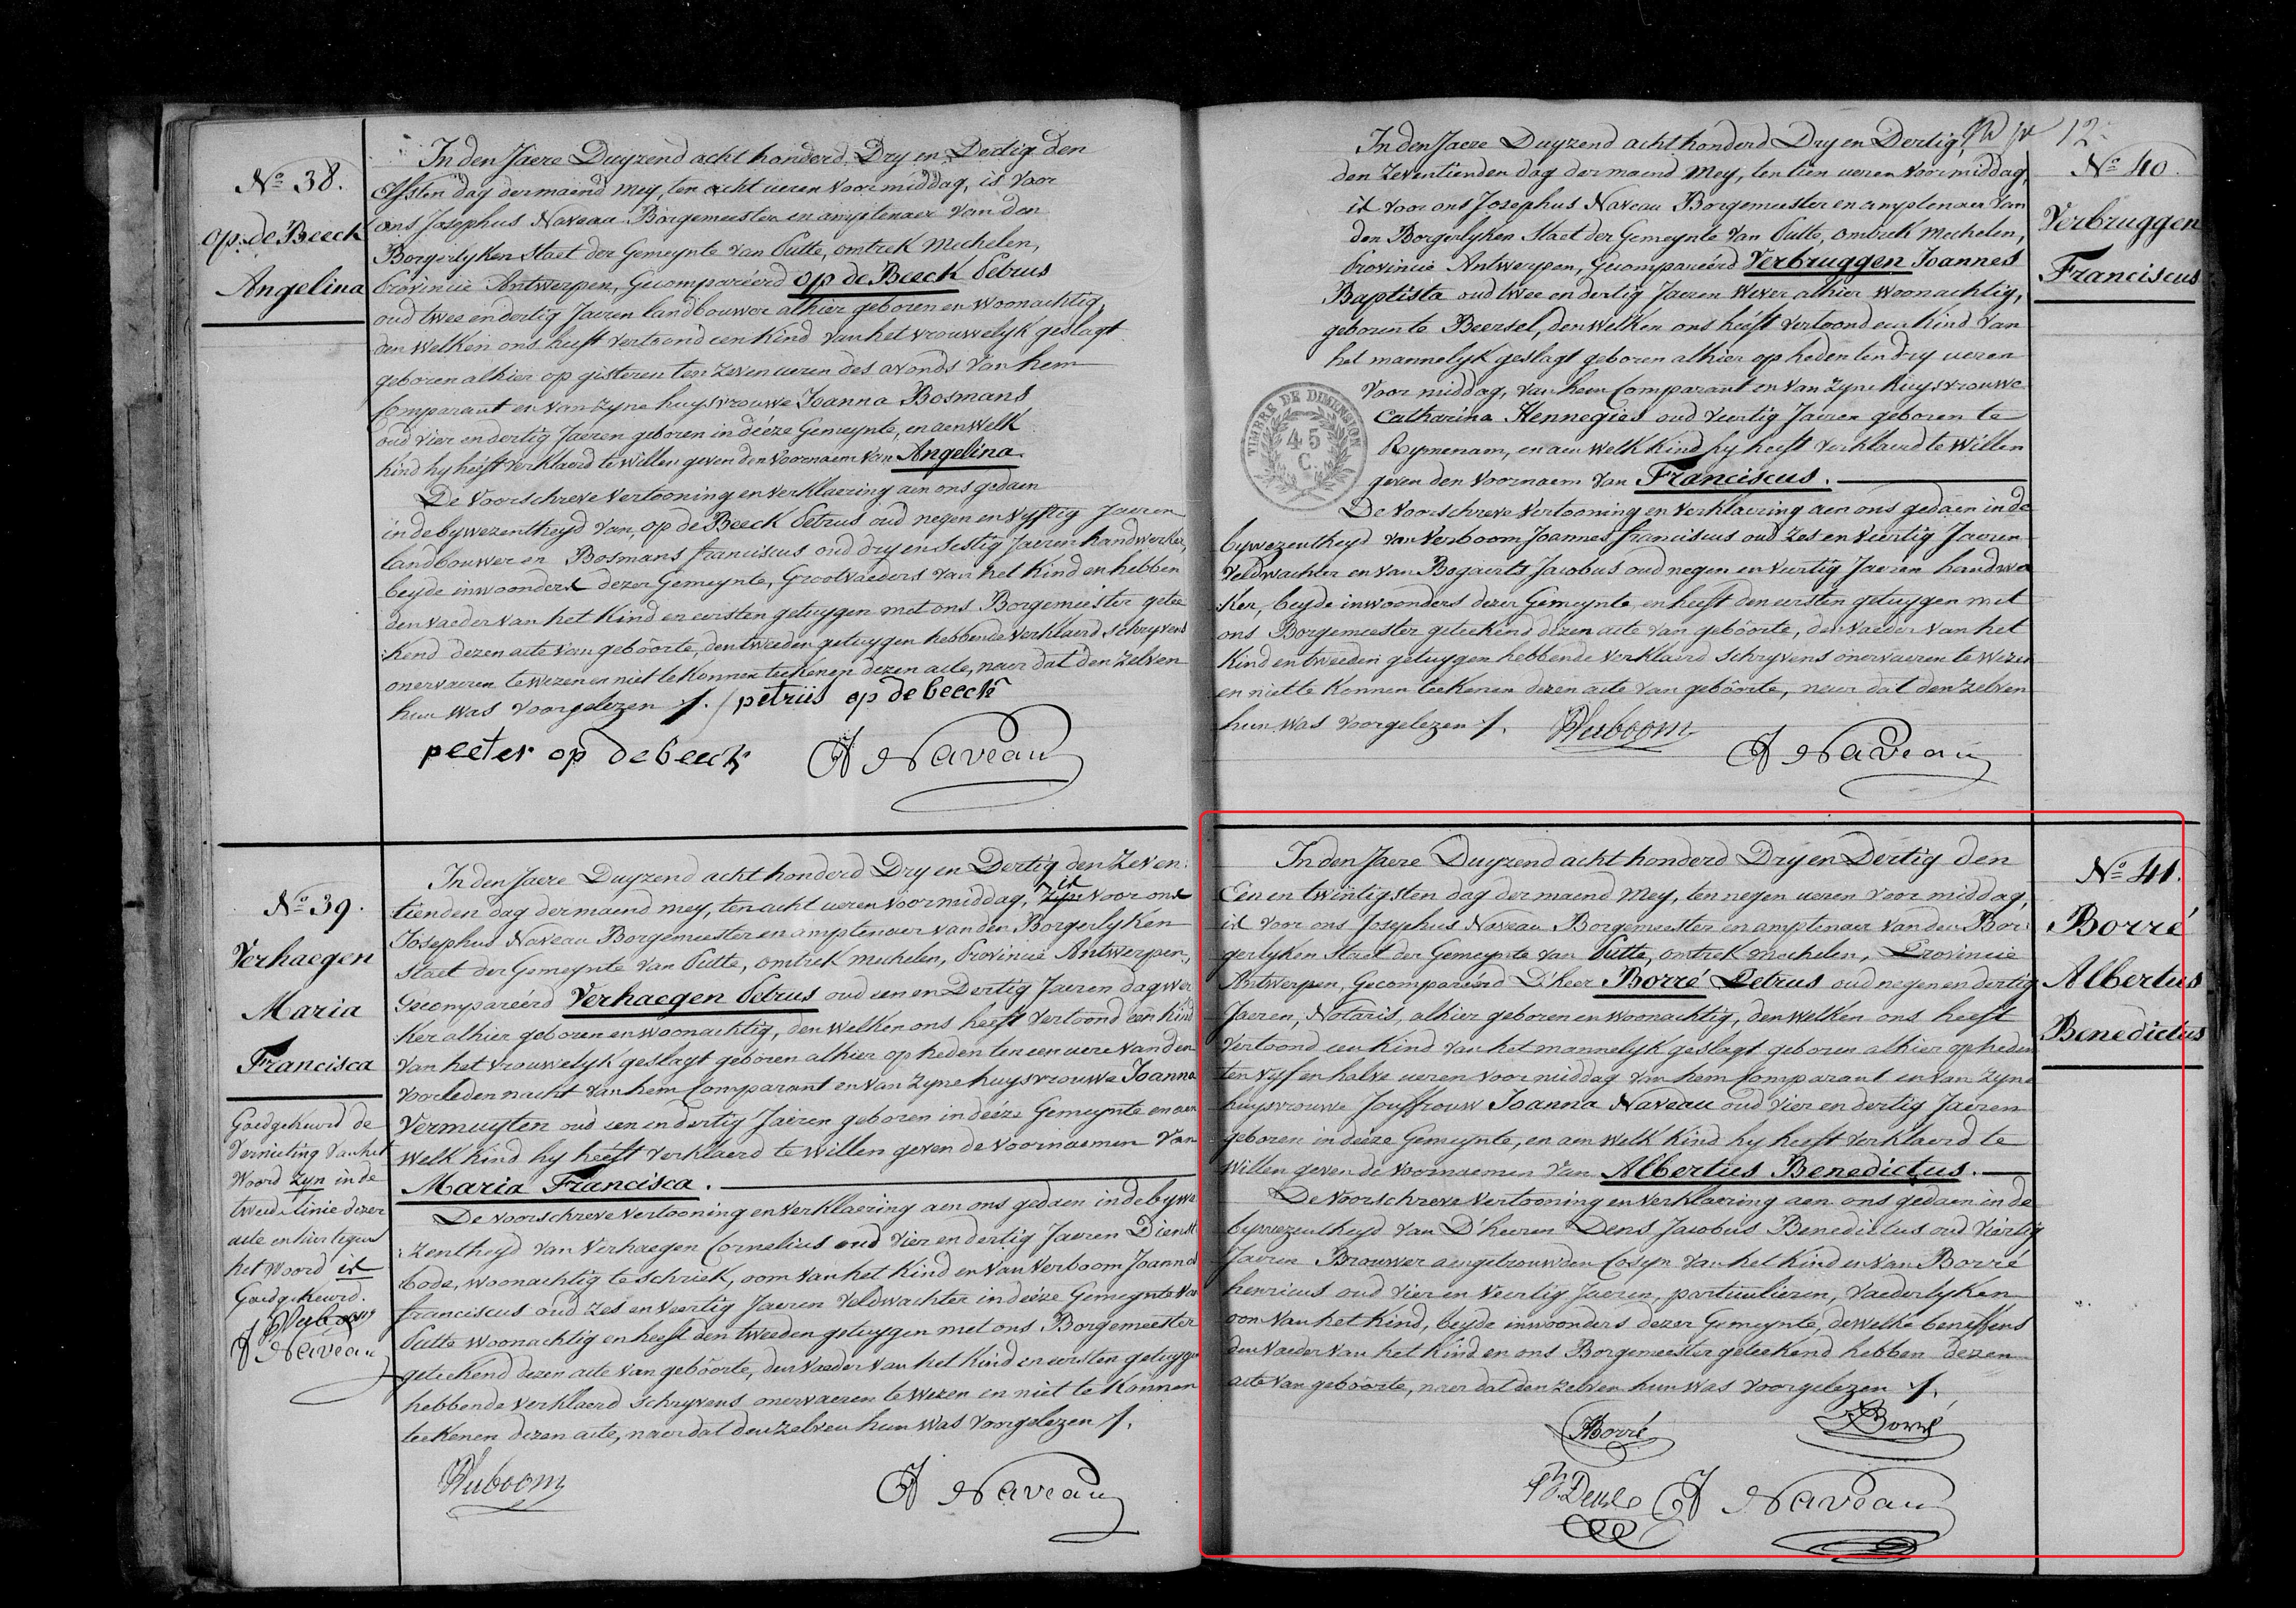 Nº 38.
op de Beeck
Angelina
In den Jaere Duyzend acht honderd Dry en Dertig den
Elfsten dag der maend Mey, ten acht ueren voormiddag, is voor
ons Josephus Naveau Borgemeester en amptenaer van den
Borgerlyken Staet der Gemeynte van Putte, omtrek Mechelen,
Provincie Antwerpen, Gecompareérd op de Beeck Petrus
oud twee en dertig Jaeren landbouwer alhier geboren en woonachtig,
den welken ons heeft vertoond een kind van het vrouwelyk geslagt
geboren alhier op gisteren ten zeven ueren des avonds van hem
Comparant en van zyne huysvrouwe Joanna Bosmans
oud vier en dertig Jaeren geboren in déeze Gemeynte, en aen welk
kind hy heéft verklaerd te willen geven den voornaem van Angelina.
De voorschreve vertooning en verklaering aen ons gedaen
in de bywezentheyd van, op de Beeck Petrus oud negen en vyftig Jaeren
landbouwer en Bosmans franciscus oud dry en sestig Jaeren handwerker,
beyde inwoonders dezer Gemeynte, Grootvaeders van het kind en hebben
den vaeder van het kind en eersten getuygen met ons Borgemeester getee
:kend dezen acte van geboórte, den tweeden getuygen hebbende verklaerd schryvens
onervaeren te wezen en niet te konnen teekenen dezen acte, naer dat den zelven
hun was voorgelezen ./. petrus op de beeck
peeter op de beeck J Naveau
Nº 39.
Verhaegen
Maria
Francisca
Goedgekeurd de
Vernieting van het
Woord zyn in de
tweede linie dezer
acte en hier tegen
het Woord is
Goedgekeurd.
Verboom
J Naveau
In den Jaere Duyzend acht honderd Dry en Dertig den Zeven:
tienden dag der maend mey, ten acht ueren voormiddag, zyn is voor ons
Josephus Naveau Borgemeester en amptenaer van den Borgerlyken
Staet der Gemeynte van Putte, omtrek mechelen, Provincie Antwerpen,
Gecompareérd Verhaegen Petrus oud een en Dertig Jaeren dagwer
:ker alhier geboren en woonachtig, den welken ons heéft vertoond een kind
van het vrouwelyk geslagt geboren alhier op heden ten een uere van den
voorleden nacht van hem Comparant en van zyne huysvrouwe Joanna
Vermuyten oud een en dertig Jaeren geboren in deéze Gemeynte en aen
welk kind hy heéft verklaerd te willen geven de voornaemen van
Maria Francisca.
De voorschreve vertooning en verklaering aen ons gedaen in de bywe
:zentheyd van Verhaegen Cornelius oud vier en dertig Jaeren Dienst
:bode, woonachtig te schriek, oom van het kind en van Verboom Joannes
franciscus oud zes en veertig Jaeren Veldwachter in deéze Gemeynte van
Putte woonachtig en heeft den tweeden getuygen met ons Borgemeester
geteekend dezen acte van geboórte, den vaeder van het kind en eersten getuygen
hebbende verklaerd schryvens onervaeren te wezen en niet te konnen
teekenen dezen acte, naer dat den zelven hun was voorgelezen ./.
Verboom J Naveau
12
Nº 40.
Verbruggen
Franciscus
In den Jaere Duyzend acht honderd Dry en Dertig,
den Zeventienden dag der maend Mey, ten tien ueren voormiddag,
is voor ons Josephus Naveau Borgemeester en amptenaer van
den Borgerlyken Staet der Gemeynte van Putte, omtrek mechelen,
Provincie Antwerpen, Gecompareérd Verbruggen Joannes
Baptista oud twee en dertig Jaeren Wever alhier woonachtig,
geboren te Beersel, den welken ons heéft vertoond een kind van
het mannelyk geslagt geboren alhier op heden ten dry ueren
voor middag, van hem Comparant en van zyne huysvrouwe
Catharina Hennegies oud veertig Jaeren geboren te
Rymenam, en aen welk kind hy heeft verklaerd te willen
geven den voornaem van Franciscus.
TIMBRE DE DIMENSION
45
C.
De voorschreve vertooning en verklaering aen ons gedaen in de
bywezentheyd van Verboom Joannes franciscus oud zes en veertig Jaeren
Veldwachter en van Bogaerts Jacobus oud negen en veertig Jaeren handwer
:ker, beyde inwoonders dezer Gemeynte, en heeft den eersten getuygen met
ons Borgemeester geteekend dezen acte van geboórte, den vaeder van het
kind en tweeden getuygen hebbende verklaerd schryvens onervaeren te wezen
en niet te konnen teekenen dezen acte van geboórte, naer dat den zelven
hun was voorgelezen ./. Verboom
J Naveau
Nº 41.
Borré
Albertus
Benedictus
In den Jaere Duyzend acht honderd Dry en Dertig den
Een en twintigsten dag der maend Mey, ten negen ueren voor middag,
is voor ons Josephus Naveau Borgemeester en amptenaer van den Bor:
gerlyken Staet der Gemeynte van Putte, omtrek mechelen, Provincie
Antwerpen, Gecompareérd D'heer Borré Petrus oud negen en dertig
Jaeren, Notaris, alhier geboren en woonachtig, den welken ons heeft
vertoond een kind van het mannelyk geslagt geboren alhier op heden
ten vyf en halve ueren voormiddag van hem Comparant en van zyne
huysvrouwe Jouffrouw Joanna Naveau oud vier en dertig Jaeren
geboren in deéze Gemeynte, en aen welk kind hy heeft verklaerd te
willen geven de voornaemen van Albertus Benedictus.
De voorschreve vertooning en verklaering aen ons gedaen in de
bywezentheyd van D'heeren Dens Jacobus Benedictus oud viertig
Jaeren Brouwer aengetrouwden Cosyn van het kind en van Borré
henricus oud vier en veertig Jaeren, particulieren, vaederlyken
oom van het kind, beyde inwoonders dezer Gemeynte, dewelke beneffens
den vaeder van het kind en ons Borgemeester geteekend hebben dezen
acte van geboórte, naer dat den zelven hun was voorgelezen ./.
Borré Borré
Dens J Naveau